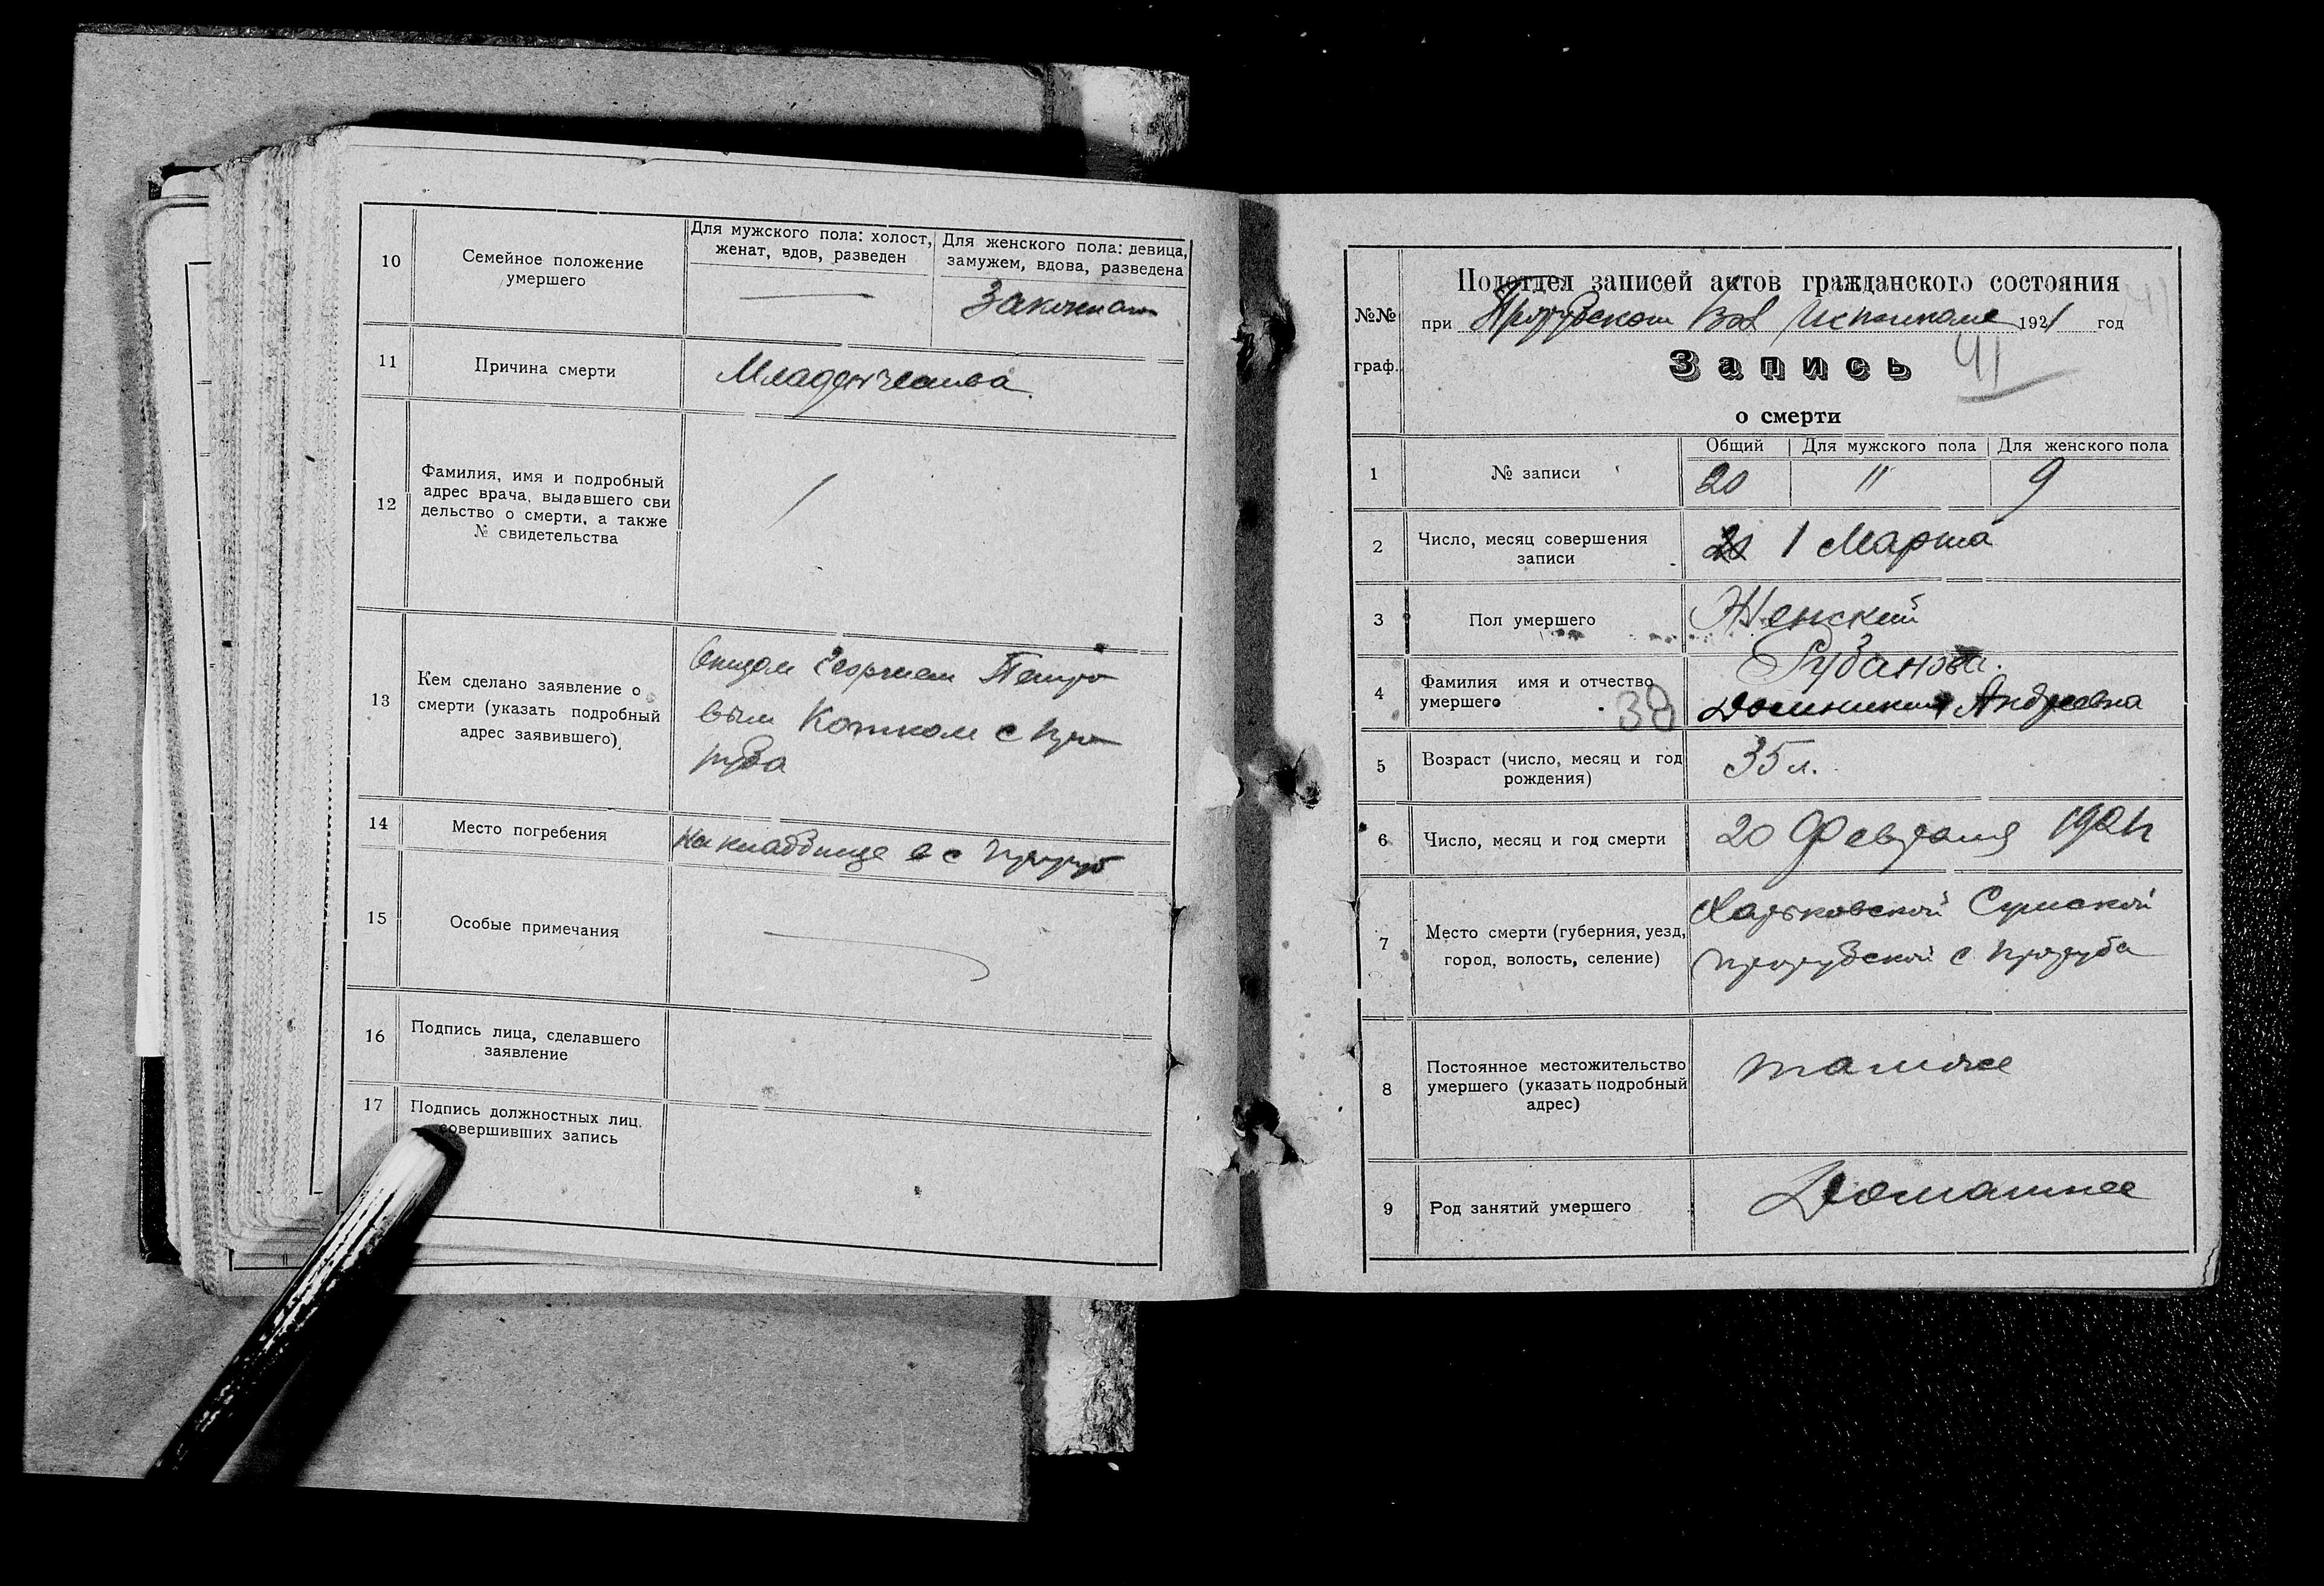 10
Семейное положение
умершего
Для мужского пола: холост,
женат, вдов, разведен
Для женского пола: девица,
замужем, вдова, разведена
11
Причина смерти
Младенчества
12
Фамилия, имя и подробный
адрес врача, выдавшего сви
дельство о смерти, а также
№ свидетельства
13
Кем сделано заявление о
смерти (указать подробный
адрес заявившего)
Отцом Георгием Петро
вым Котком с Про
руба
14
Место погребения
На кладбище в с Проруб
15
Особые примечания
16
Подпись лица, сделавшего
заявление
17
Подпись должностных лиц,
совершивших запись
№№
граф.
Подотдел записей актов гражданского состояния
при Прорубском Вол Исполкоме 1921 год
Запись 41
о смерти
1
№ записи
Общий
Для мужского пола
Для женского пола
20
"
9
2
Число, месяц совершения
записи
20 1 Марта
3
Пол умершего
Женский
4
Фамилия имя и отчество
умершего
38
Рубанова.
Андреевна
5
Возраст (число, месяц и год
рождения)
35 л.
6
Число, месяц и год смерти
20 Февраля 1921 г
7
Место смерти (губерния, уезд,
город, волость, селение)
Харьковской Сумской
Прорубской с Проруба
8
Постоянное местожительство
умершего (указать подробный
адрес)
там же
9
Род занятий умершего
Домашнее